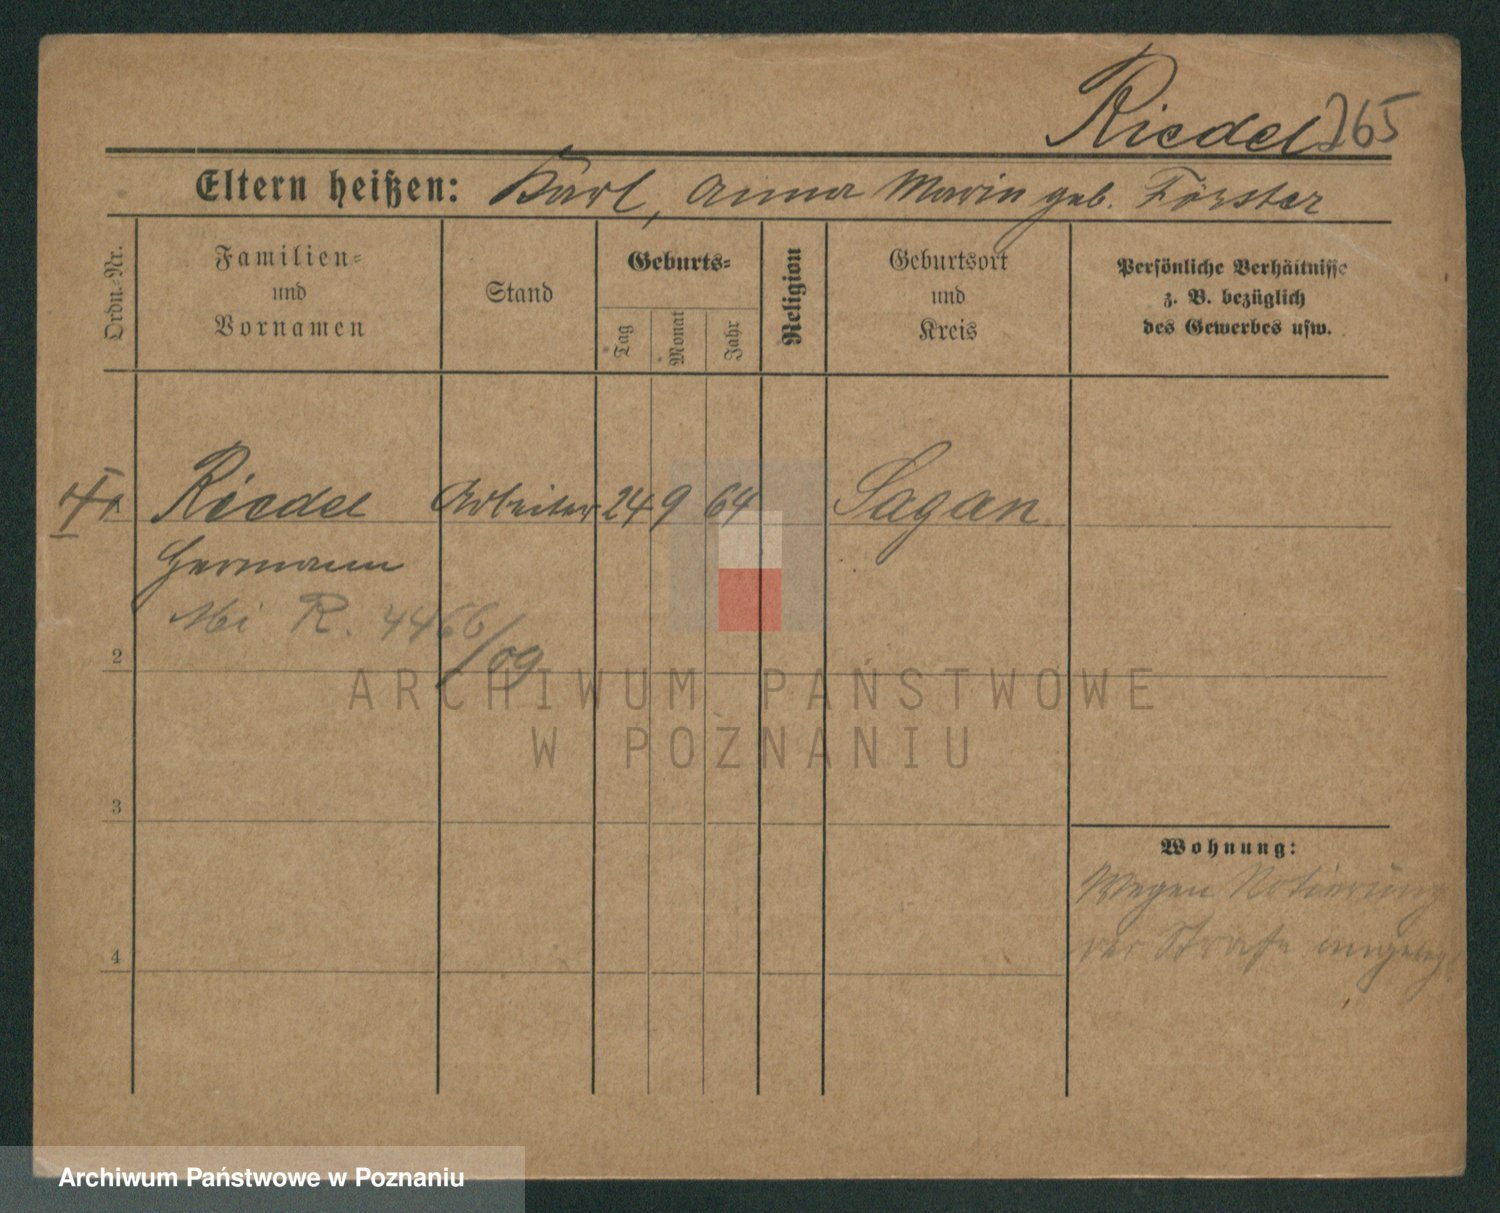 Riedel 265
Eltern heißen: Karl, Anna Maria geb. Förster
Ordn.-Nr.
Familien- und Vornamen
Stand
Geburts-
Tag
Monat
Jahr
Religion
Geburtsort und Kreis
Persönliche Verhältnisse
z. B. bezüglich
des Gewerbes usw.
Riedel Arbeiter 24 9 64 Sagan
Hermann
R. 4466/09
2
3
4
Wohnung:
Wegen Notierung
der Strafe
ARCHIWUM PAŃSTWOWE
W POZNANIU
Archiwum Państwowe w Poznaniu